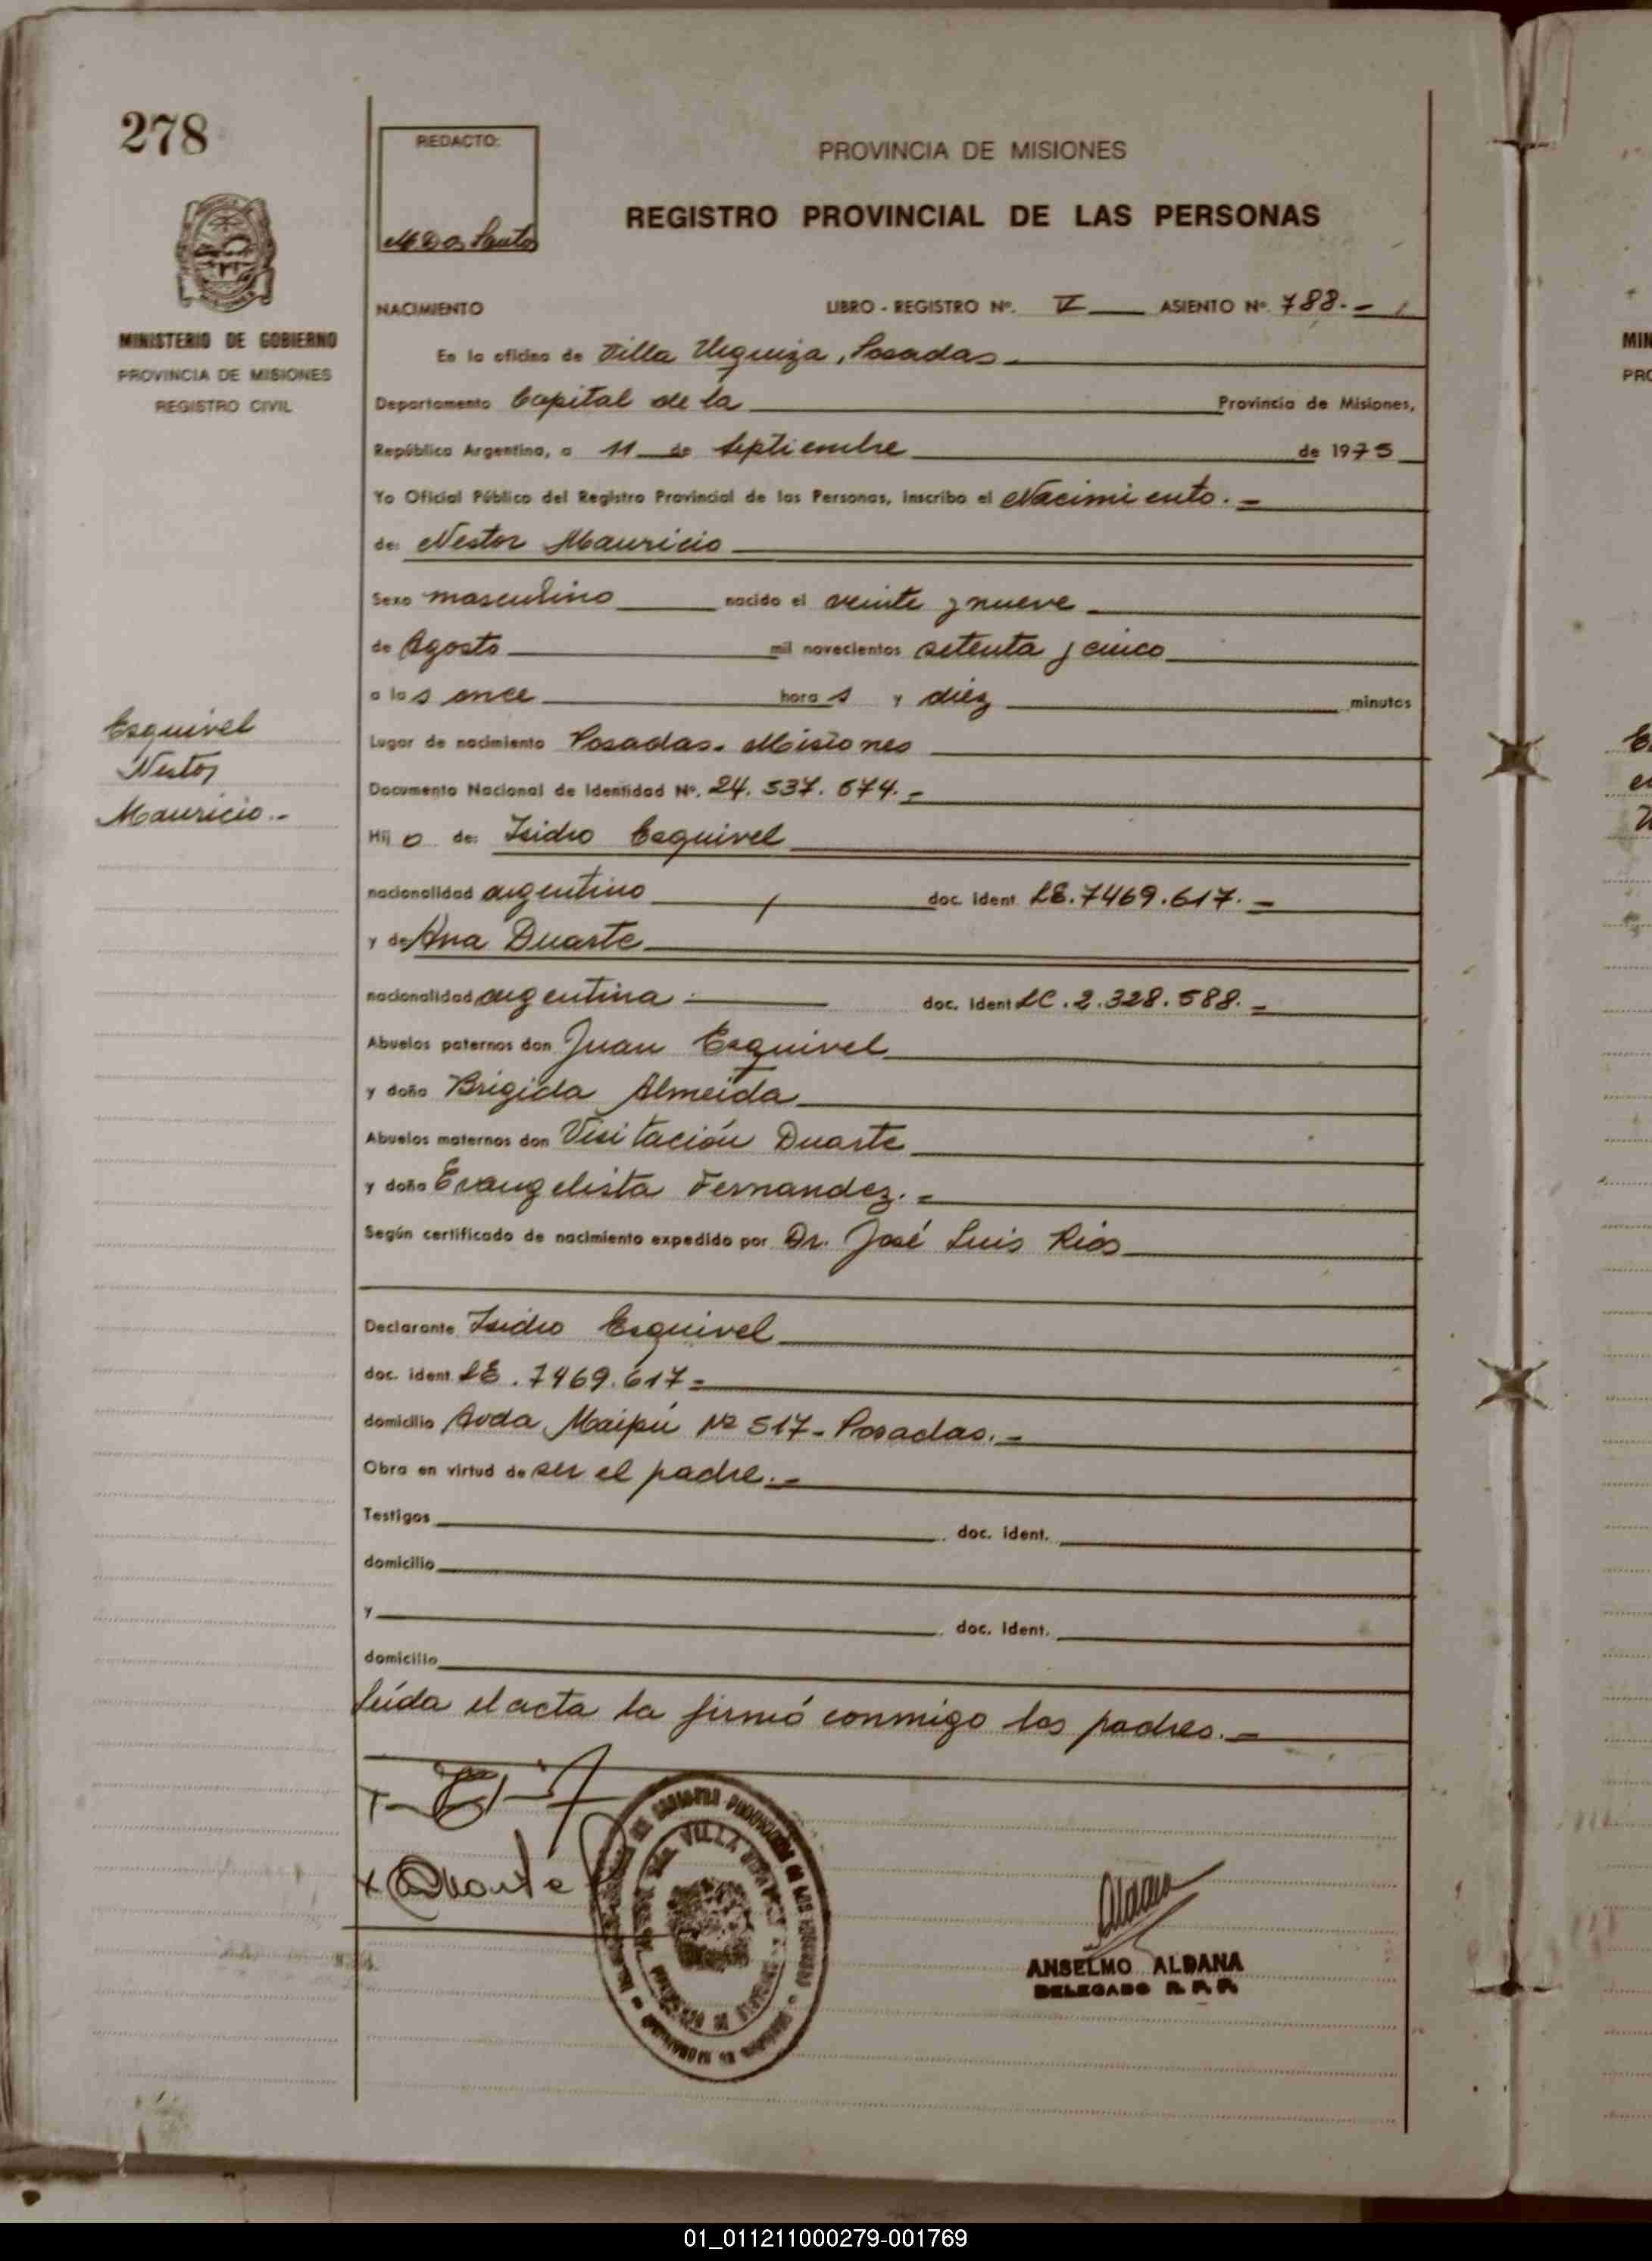 278
REDACTO:
M Dos Santos
PROVINCIA DE MISIONES
REGISTRO PROVINCIAL DE LAS PERSONAS
MINISTERIO DE GOBIERNO
PROVINCIA DE MISIONES
REGISTRO CIVIL
NACIMIENTO LIBRO - REGISTRO Nº. V ASIENTO Nº. 788.-
En la oficina de Villa Urquiza, Posadas
Departamento Capital de la Provincia de Misiones,
República Argentina, a 11 de Septiembre de 1975
Yo Oficial Público del Registro Provincial de las Personas, inscribo el Nacimiento.-
de: Nestor Mauricio
Sexo masculino nacido el veinte y nueve
de Agosto mil novecientos setenta y cinco
a las once horas y diez minutos
Esquivel
Nestor
Mauricio.-
Lugar de nacimiento Posadas. Misiones
Documento Nacional de Identidad Nº. 24.537.674.-
Hijo de: Isidro Esquivel
nacionalidad argentino doc. ident. LE.7469.617.-
y de Ana Duarte
nacionalidad argentina.- doc. ident LC.2.328.588.-
Abuelos paternos don Juan Esquivel
y doña Brigida Almeida
Abuelos maternos don Visitación Duarte
y doña Evangelista Fernandez.-
Según certificado de nacimiento expedido por Dr. José Luis Rios
Declarante Isidro Esquivel
doc. ident. LE.7469.617=
domicilio Avda Maipú Nº 517- Posadas.-
Obra en virtud de ser el padre.-
Testigos doc. ident.
domicilio
y doc. ident.
domicilio
Leída el acta la firmó conmigo los padres.-
x Duarte
VILLA
ANSELMO ALDANA
DELEGADO R. P. P.
01_011211000279-001769